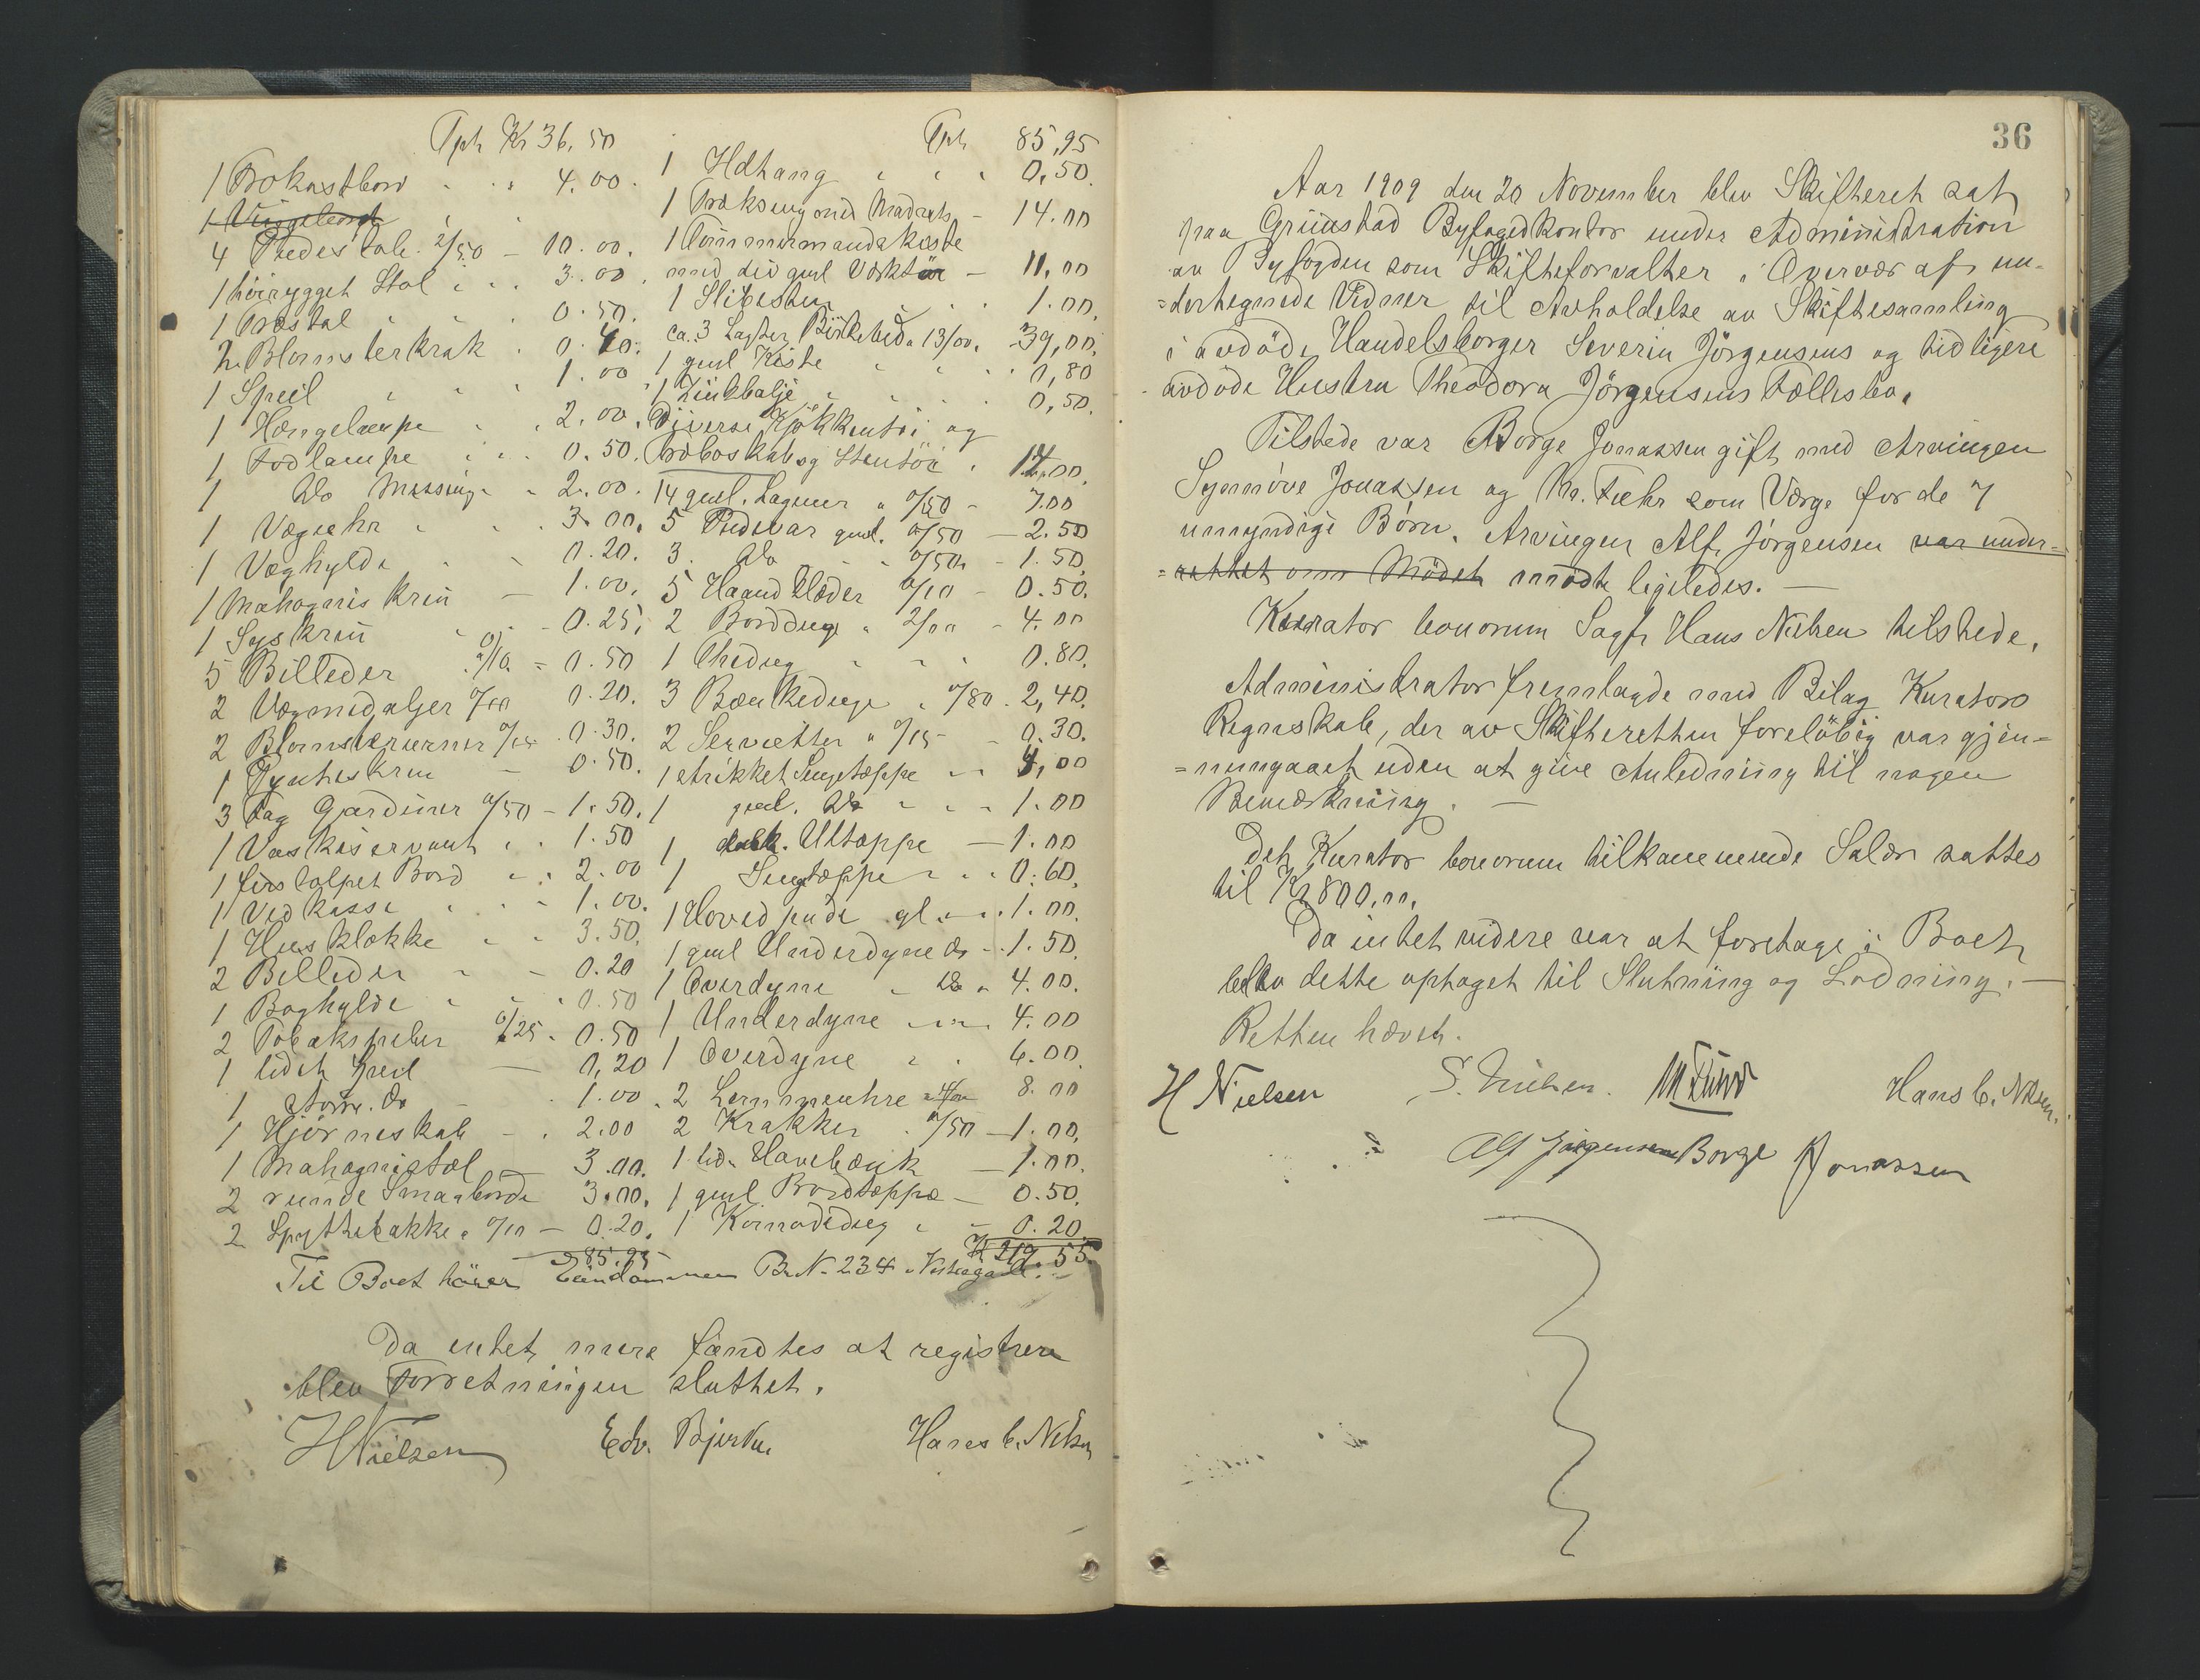 Tph Kr 36.50
1 Frokostbord " " 4.00.
1 Vingebord
4 Piedestale 2/50 - 10.00.
1 höirygget Stol " " 3.00
1 Træstol " " 0.50.
2 Blomsterkrak " 0.40.
1 Speil " " 1.00
1 Hængelampe " 2.00.
1 Fodlampe " " 0.50.
1 Do Messing " 2.00.
1 Vægeuhr " " 3.00.
1 Væghylde " " 0.20.
1 Mahognis Krin — 1.00.
1 Syskrin " - 0.25.
5 Billeder 0/10. = 0.50
2 Vægmedaljer 0/10 0.20.
2 Blomsterurner 0/15 0.30.
1 Pynteskrin — 0.50.
3 Fag Gardiner 0/50 - 1.50.
1 Vaskeservant " " 1.50
1 firstolpet Bord " " 2.00
1 Vedkasse " " 1.00.
1 Husklokke " " 3.50.
2 Billeder " - 0.20
1 Boghylde " " 0.50
2 Tobakspiber 0/25 " 0.50
1 lidet Speil — 0,20
1 större Do - 1.00
1 Hjörneskab - . 2.00
1 Mahognistol — 3.00.
2 runde Smaaborde 3.00.
2 Spyttebakke " 0/10 - 0.20.
85.95
Tph 85,95
1 Hdhang " " " 0,50.
1 Træksengmed Madrats - 14.00
1 Tömmermandskiste
med div gml Værktöi - 11,00
1 Slibesten " " 1.00.
ca. 3 Lagter Birkebed " 13/00. 39,00.
1 gml Kiste " " 0,80
1 Zinkbalje " " 0,50.
Diverse Kjökkentöi og
Træboskab og Stentöi . 14.00.
14 gml. Lagner " 0/50 - 7.00
5 Pudevar gml. 0/50 — 2.50
3. Do " 0/50 - 1.50.
5 Haandklæder 0/10 - 0.50.
2 Borddug " 2/00 - 4.00
1 Thedug " " " 0.80.
3 Bænkeduge " 0/80 . 2,40.
2 Servietter " 0/15 - 0.30.
1 strikket Sengetæppe " " 4,00
1 gml. Do " " " 1.00
1 dobb. Uldtæppe — 1.00
1 Sengtæppe " " 0.60.
1 Hovedpude gl. " " 1.00.
1 gml Underdyne do - 1.50.
1 Overdyne " do " 4.00.
1 Underdyne " " " 4.00
1 Overdyne " . 6.00.
2 Lænnmeuhre 4/00 8.00
2 Krakker . 0/50 — 1.00.
1 lid. Havebænk — 1.00.
1 gml Bordtæppe — 0.50.
1 Komodedug " - 0.20.
Kr 219.55
Til Boet hörer Eiendommen B.N. 234 i Vestregade.
Da intet mere fandtes at registrere
blev Forretningen sluttet.
HNielsen Edv. Bjerke Hans C. Nilsen
36
Aar 1909 den 20 November blev Skifteret sat
paa Grimstad Byfogedkontor under Administration
av Byfogden som Skifteforvalter i Overvær af un-
=dertegnede Vidner til Avholdelse av Skiftesamling
i avdöde Handelsborger Severin Jörgensens og tidligere
avdöde Hustru Theodora Jörgensens Fællesbo.
Tilstede var Borge Jonassen gift med Arvingen
Synnöve Jonassen og Kr. Fuhr som Værge for de 7
umyndige Börn. Arvingen Alf Jörgensen var under=
=rettet om Mödet mödte ligeledes. —
Kurator bonorum Sagf. Hans Nielsen tilstede.
Administrator fremlagde med Bilag Kurators
Regnskab, der av Skifteretten foreløbig var gjen=
=nemgaaet uden at give Anledning til nogen
Bemærkning. —
Det Kurator bonorum tilkommende Salær sattes
til Kr 800,00.
Da intet videre var at foretage i Boet
blev dette optaget til Slutning og Lodning. —
Retten hævet.
H Nielsen S. Nielsen. Hans C. Nilsen.
Alf Jørgensen Borge Jonassen